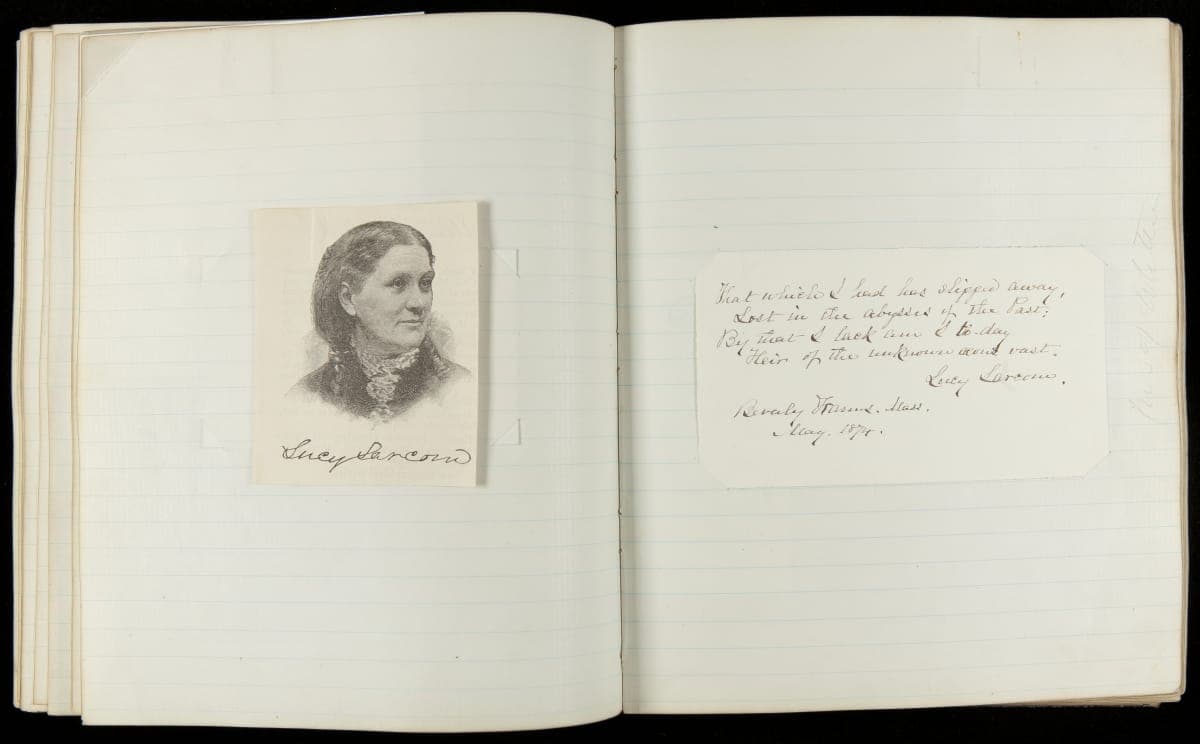 Lucy Larcom
That which I had has slipped away,
Lost in the abysses of the Past;
By that I lack am I to-day
Heir of the unknown and vast.
Lucy Larcom.
Beverly Farms. Mass.
May. 1874.